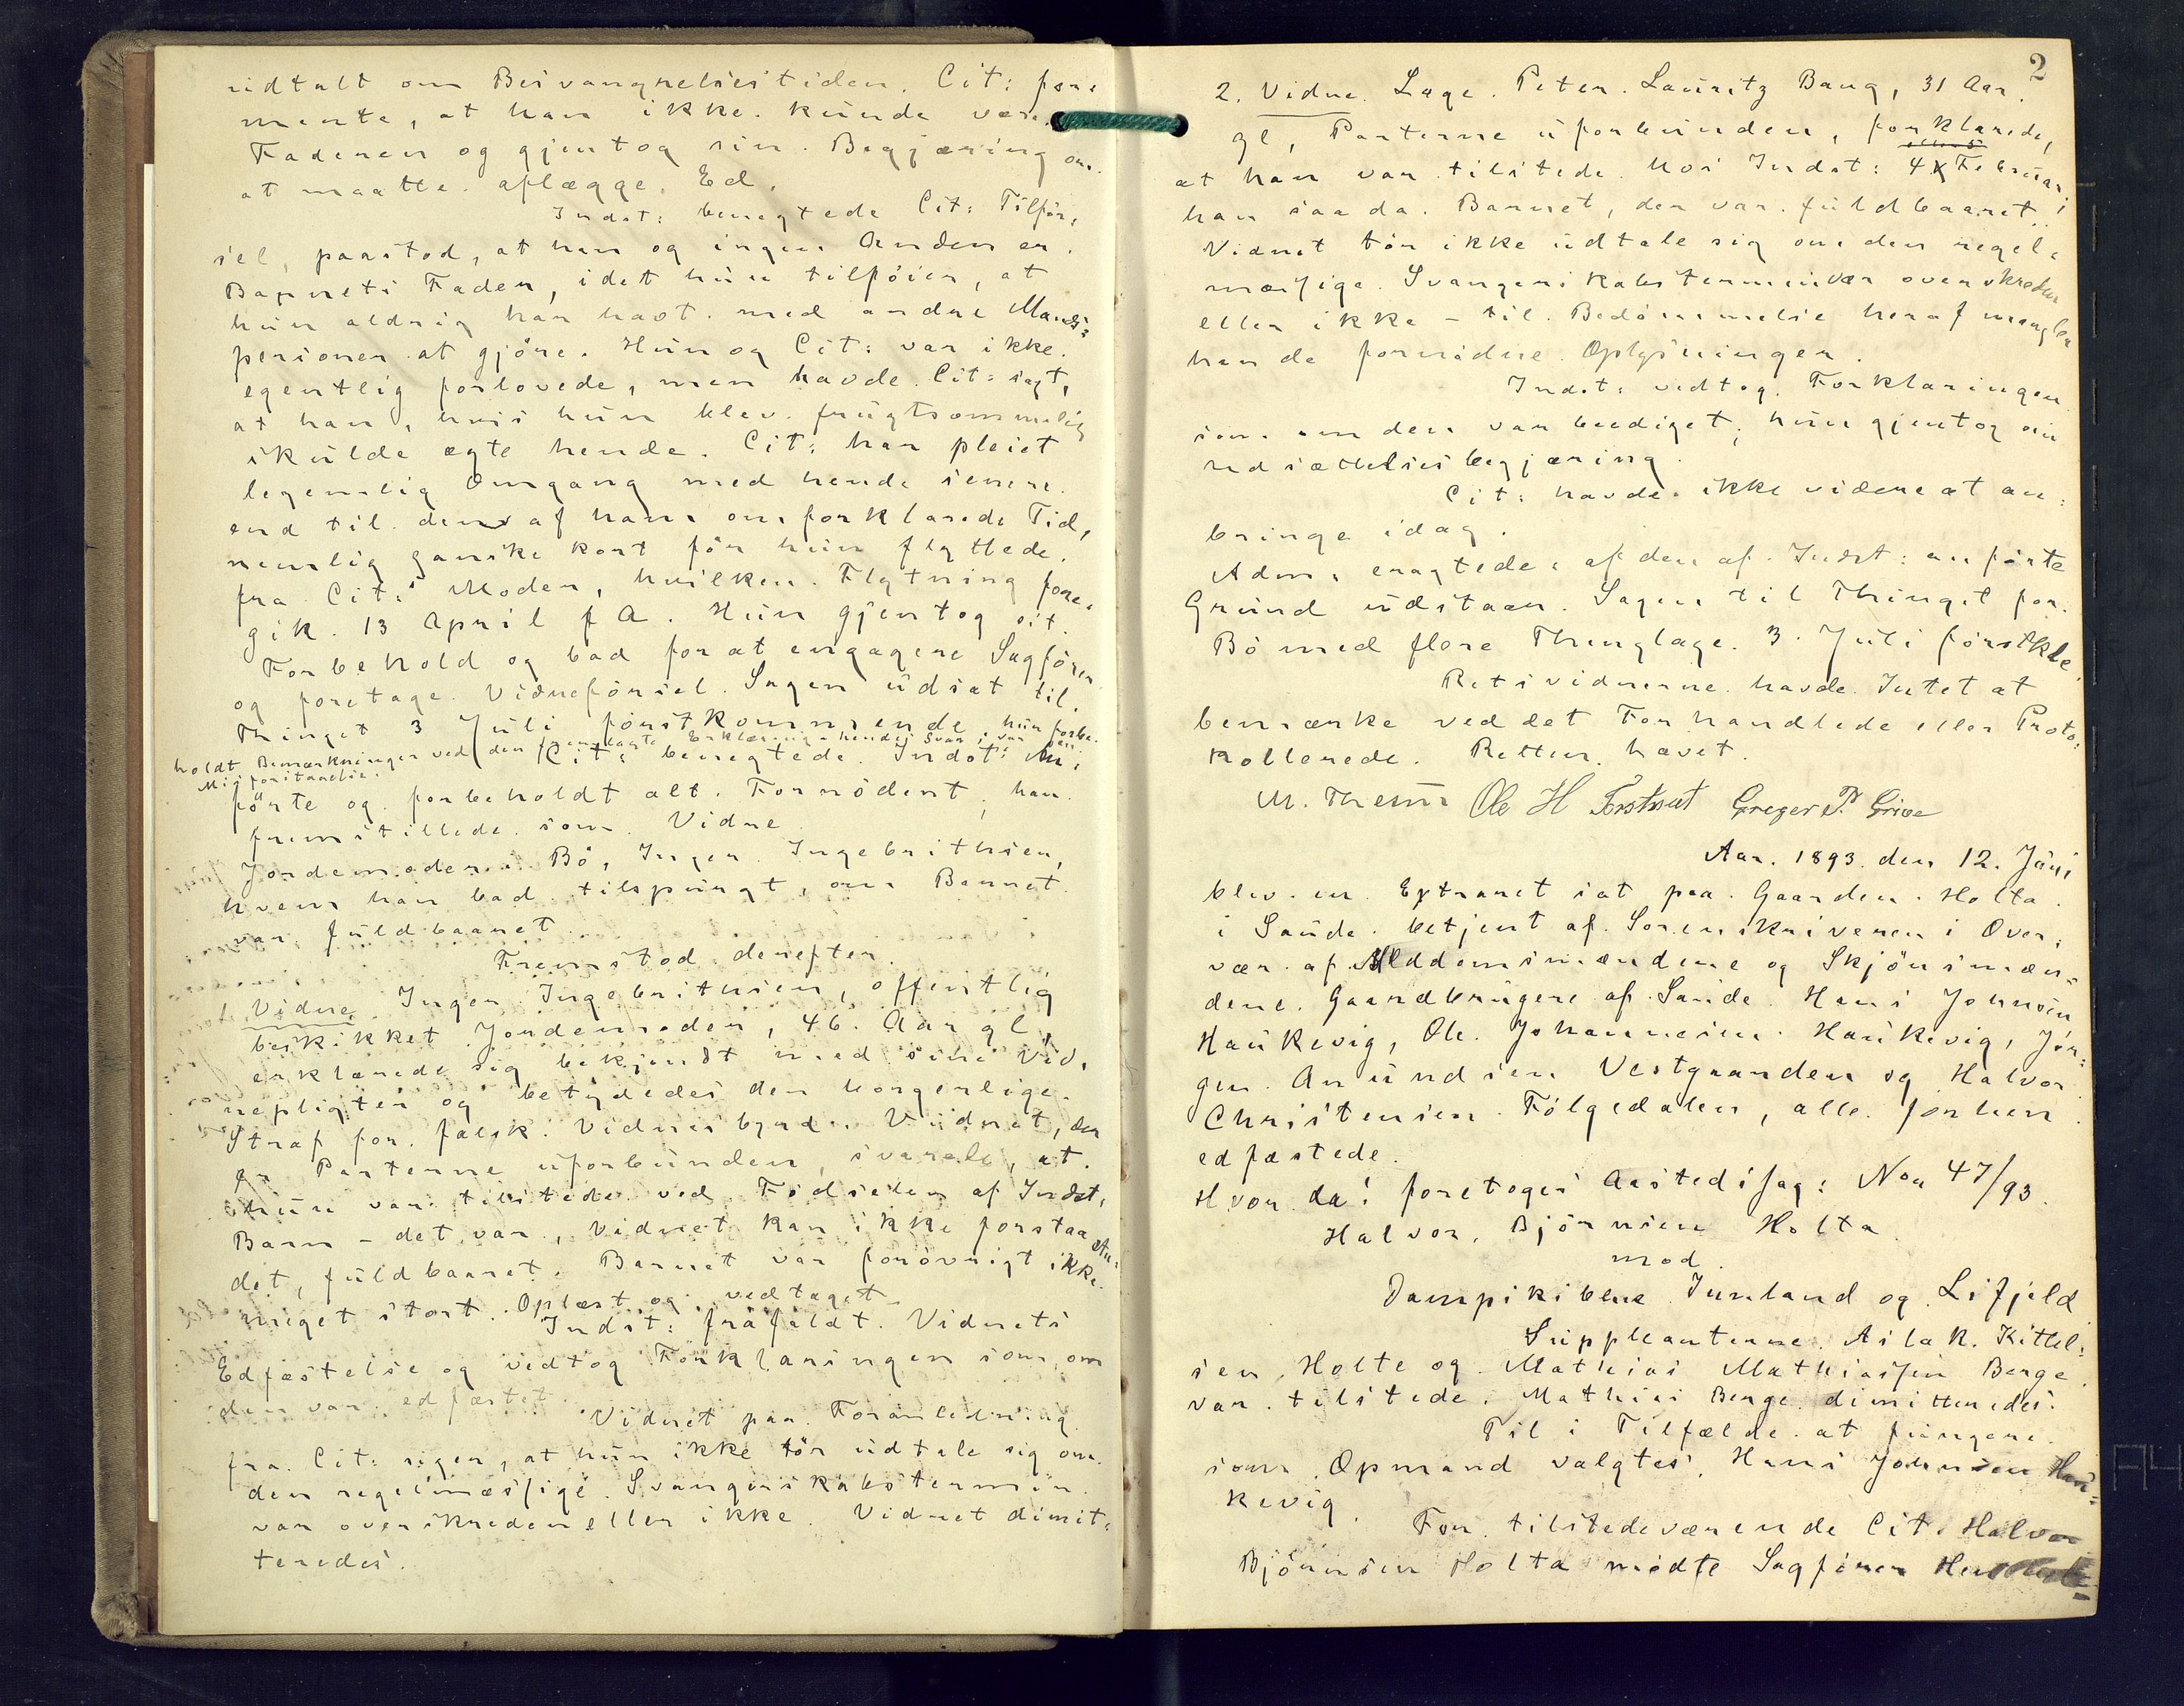 udtalt om Besvangrelsestiden. Cit: for-
mente, at han ikke kunde være
Faderen og gjentog sin Begjæring om
at maatte aflægge Ed.
Indst: benegtede Cit: Tilfør-
sel, paastod, at han og ingen Anden er
Barnets Fader, idet hun tilføier, at
hun aldrig har havt med andre Mands-
personer at gjöre. Hun og Cit: var ikke
egentlig forlovede, men havde Cit: sagt,
at han, hvis hun blev frugtsommelig
skulde ægte hende. Cit: har pleiet
legemlig Omgang med hende senere
end til den af ham omforklarede Tid,
nemlig ganske kortför hun flyttede
fra Cit:s Moder, hvilken Flytning fore-
gik 13 April f A. Hun gjentog sit
Forbehold og bad for at engagere Sagförer
og foretage Vidneförsel Sagen udsat til
Thinget 3 Juli förstkommende, hun forbe-
holdt Bemærkninger ved den fremlagte Erklæring - hendes Svar var en
Misforstaaelse.
Cit: benegtede Indst: An-
förte og forbeholdt alt Fornödent, han
fremstillede som Vidne
Jordemoder i Bö, Inger Ingebrithsen,
hvem han bad tilspurgt, om Barnet
var fuldbaaret.
Fremstod derefter
1 Vidne Inger Ingebrithsen, offentlig
beskikket Jordemoder, 46 Aar gl,
erklærede sig bekjendt med sine Vid-
nepligter og betydedes den borgerlige
Straf for falsk Vidnesbyrd. Vidnet, der
er Parterne uforbunden, svarede, at
hun var tilstede ved Födselen af Indst,
Barn - det var, Vidnet kan ikke forstaa An-
det, fuldbaaret. Barnet var forövrigt ikke
meget stort. Oplæst og vedtaget.
Indst: frafaldt Vidnets
Edfæstelse og vedtog Forklaringen som om
den var edfæstet.
Vidnet paa Foranledning
fra Cit: siger, at hun ikke tör udtale sig om
den regelmæssige Svangerskabstermin
var overskreden eller ikke. Vidnet dimit-
teredes.
2
2. Vidne Læge Peter Lauritz Bang, 31 Aar
gl, Parterne uforbunden, forklarede,
at han var tilstede hos Indst: 4 Februar,
han saa da Barnet, der var fuldbaaret.
Vidnet tör ikke udtale sig om den regel-
mæssige Svangerskabstermin var overskreden
eller ikke - til Bedömmelse heraf mangler
han de fornödne Oplysninger.
Indst: vedtog Forklaringen
som om den var beediget, hun gjentog sin
Udsættelsesbegjæring.
Cit: havde ikke videre at an-
bringe idag.
Adm: eragtede: af den af Indst: anförte
Grund udstaar Sagen til Thinget for
Bö med flere Thinglage 3 Juli förstkde.
Retsvidnerne havde Intet at
bemærke ved det Forhandlede eller Proto-
kollerede. Retten hævet.
Ole H Gregar Grive
Aar. 1893 den 12. Juni
blev en Extraret sat paa Gaarden Holta
i Saude betjent af Sorenskriveren i Over-
vær af Meddomsmændene og Skjönsmæn-
dene Gaardbrugere af Saude Hans Johnsen
Haukevig, Ole Johannesen Haukevig, Jör-
gen Anundsen Vestgaarden og Halvor
Christensen Fölgedalen, alle forhen
edfæstede.
Hvor da! foretoges Aastedssag: No. 47/93.
Halvor Björnsen Holta
mod
Dampskibene Innland og Lifjeld
Suppleanterne Aslak Kittel-
sen Holte og Mathias Mathiassen Berge
var tilstede. Mathias Berge dimitteredes.
Til i Tilfælde at fungere
som Opmand valgtes Hans Johnsen Hau-
kevig.
For tilstedeværende Cit. Halvor
Björnsen Holta mödte Sagförer